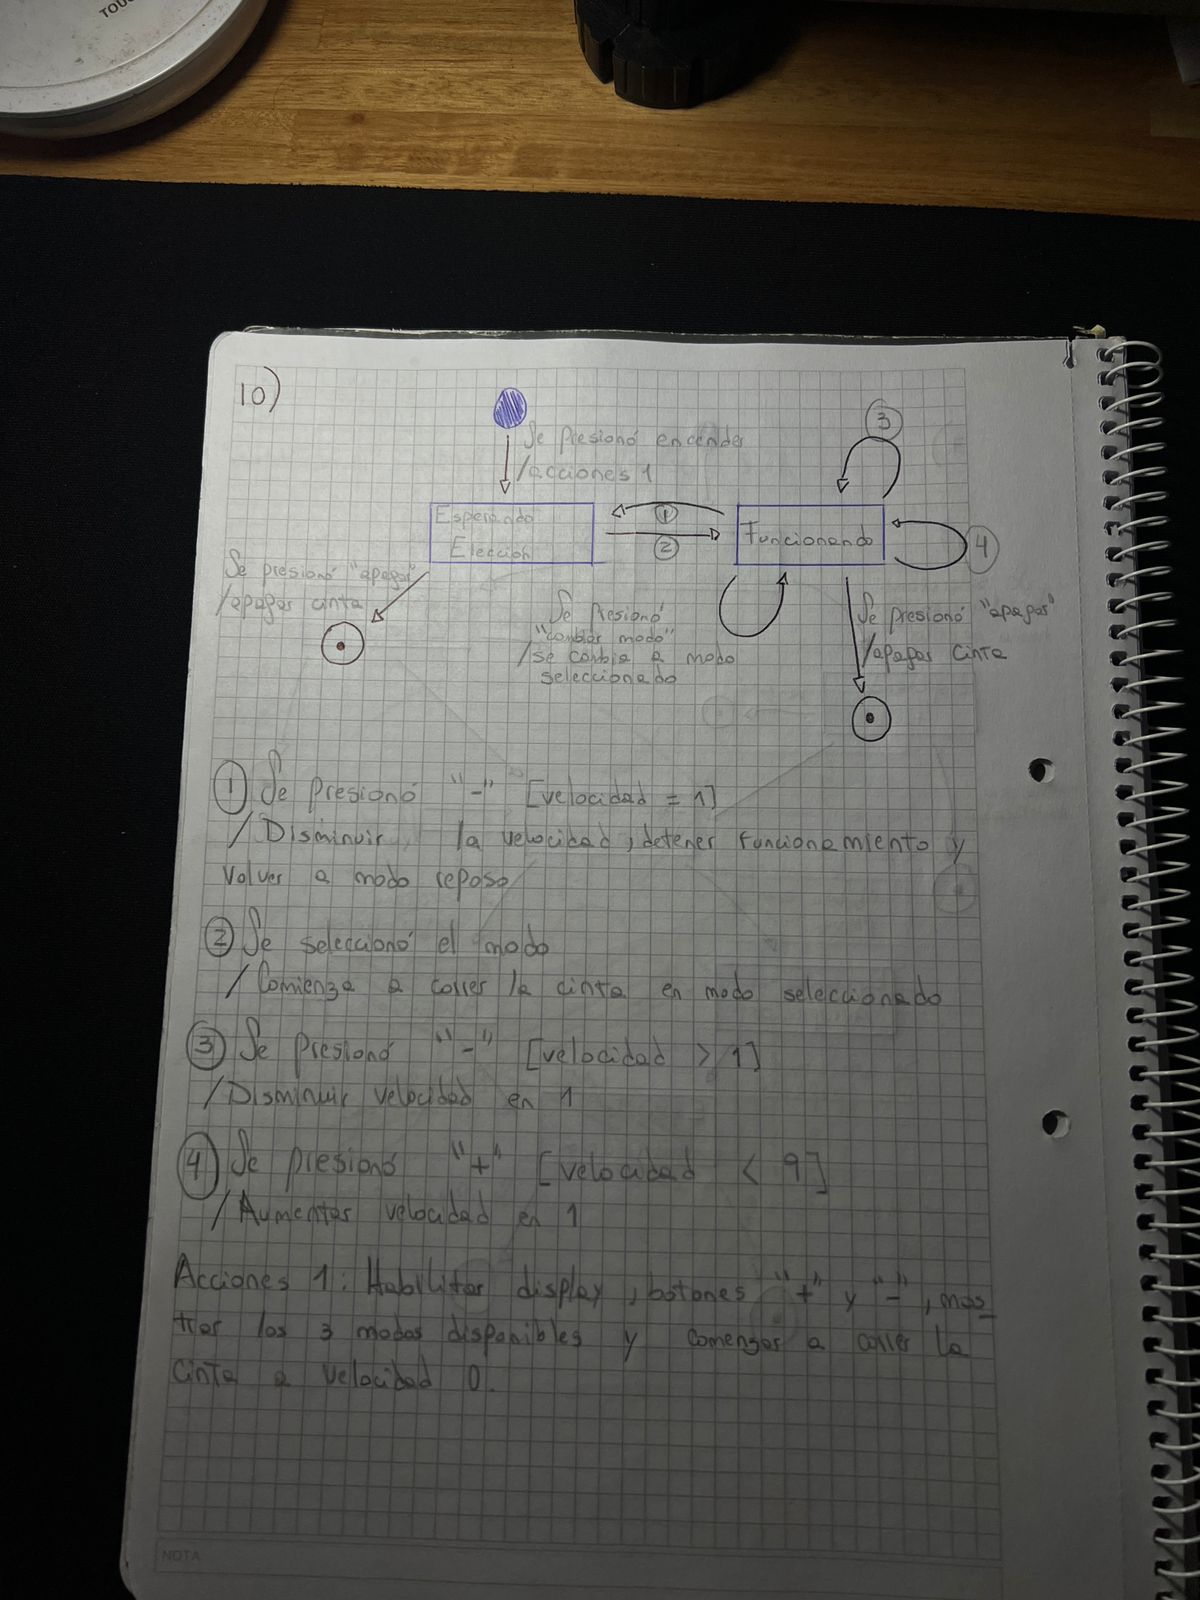 TOU
10)
Se presionó encender
/acciones 1
3
Esperando
Elección
1
2
Funcionando
4
Se presionó "apagar"
/apagar cinta
Se presionó
"cambiar modo"
/se cambia a modo
seleccionado
Se presionó "apagar"
/apagar cinta
1 Se presionó "-" [velocidad = 1]
/ Disminuir la velocidad, detener funcionamiento y
volver a modo reposo
2 Se seleccionó el modo
/ Comienza a correr la cinta en modo seleccionado
3 Se presionó "-" [velocidad > 1]
/ Disminuir velocidad en 1
4 Se presionó "+" [velocidad < 9]
/ Aumentar velocidad en 1
Acciones 1: Habilitar display, botones "+" y "-", mos_
trar los 3 modos disponibles y comenzar a correr la
cinta a velocidad 0.
NOTA